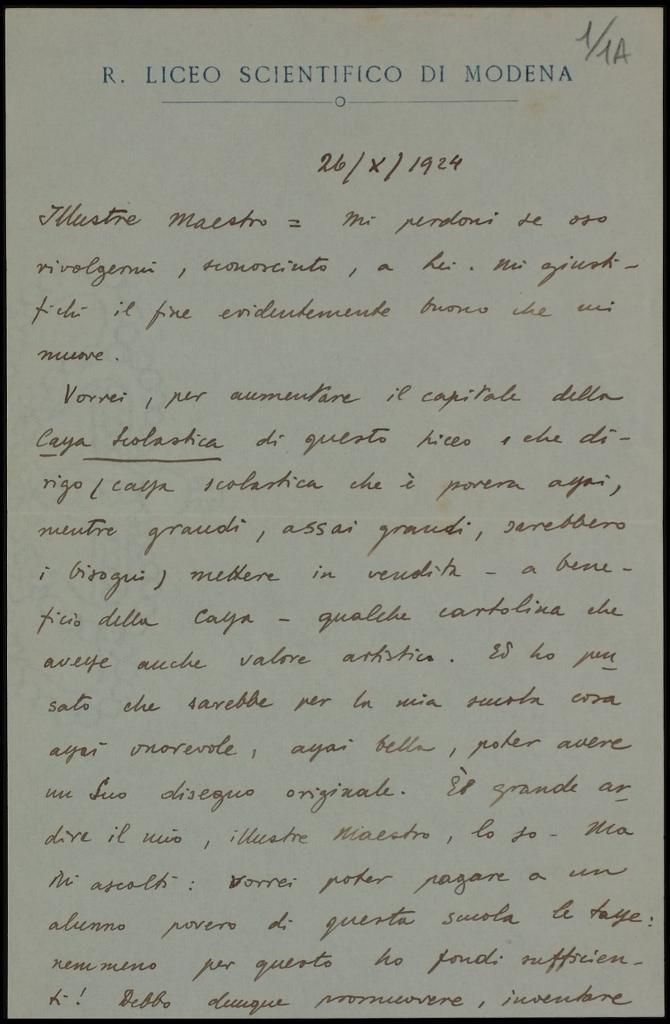 1/1A
R. LICEO SCIENTIFICO DI MODENA
26/X/1924
Illustre Maestro = Mi perdoni se oso
rivolgermi, sconosciuto, a Lei. Mi giusti-
fichi il fine evidentemente buono che mi
muove.
Vorrei, per aumentare il capitale della
Cassa Scolastica di questo Liceo che di-
rigo (cassa scolastica che è povera assai,
mentre grandi, assai grandi, sarebbero
i bisogni) mettere in vendita - a bene-
ficio della Cassa - qualche cartolina che
avesse anche valore artistico. Ed ho pen
sato che sarebbe per la mia scuola cosa
assai onorevole, assai bella, poter avere
un Suo disegno originale. È grande ar
dire il mio, illustre Maestro, lo so - Ma
Mi ascolti: Vorrei poter pagare a un
alunno povero di questa scuola le tasse:
nemmeno per questo ho fondi sufficien-
ti! Debbo dunque promuovere, inventare